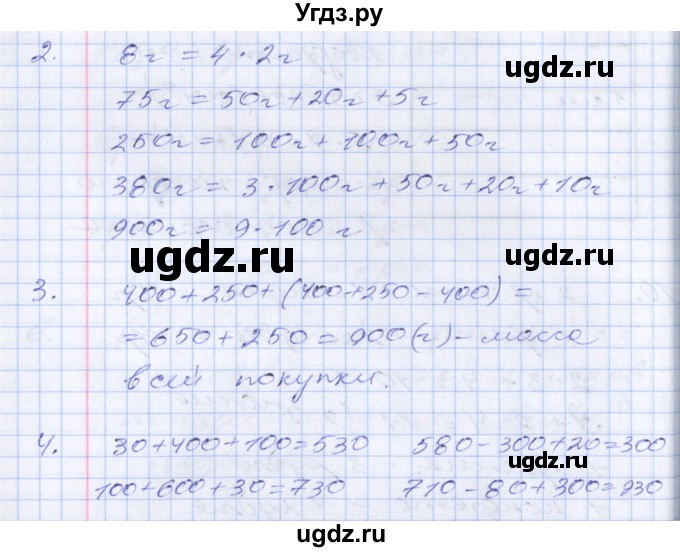 Угдз.ру
2. 8г = 4 · 2г
ugdz.ru ugdz.ru
75г = 50г + 20г + 5г
250г = 100г + 100г + 50г
380г = 3 · 100г + 50г + 20г + 10г
900г = 9 · 100 г
ugdz.ru ugdz.ru
3. 400 + 250 + (400 + 250 - 400) =
= 650 + 250 = 900 (г) - масса
всей покупки.
ugdz.ru ugdz.ru
4. 30 + 400 + 100 = 530 580 - 300 + 20 = 300
100 + 600 + 30 = 730 710 - 80 + 300 = 930
ugdz.ru ugdz.ru